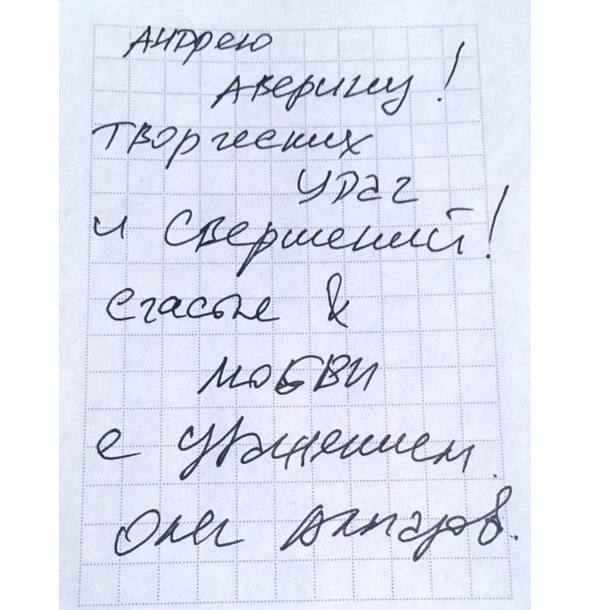 Андрею
Аверину!
Творческих
удач
и свершений!
Счастье &
любви
с уважением.
Олег